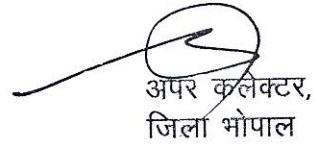 अपर कलेक्टर,
जिला भोपाल